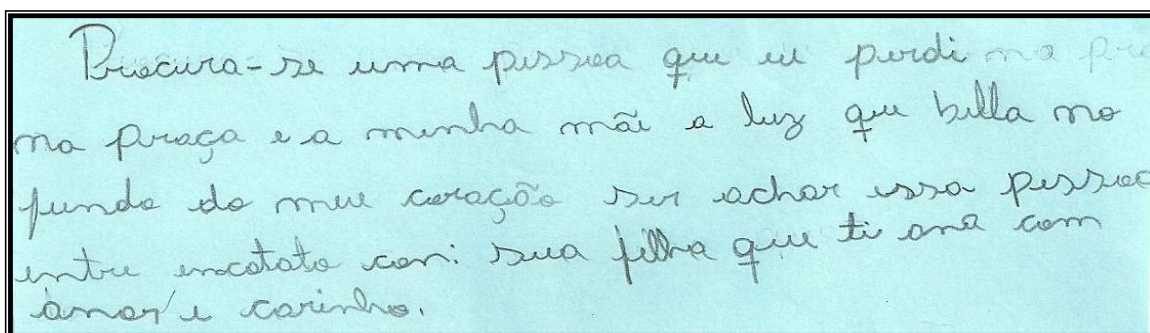 Procura-se uma pessoa que eu perdi na pra
na praça e a minha mãe a luz que billa no
fundo do meu coração ser achar essa pessoa
entre encotato con: sua filha que ti ama com
amor e carinho.